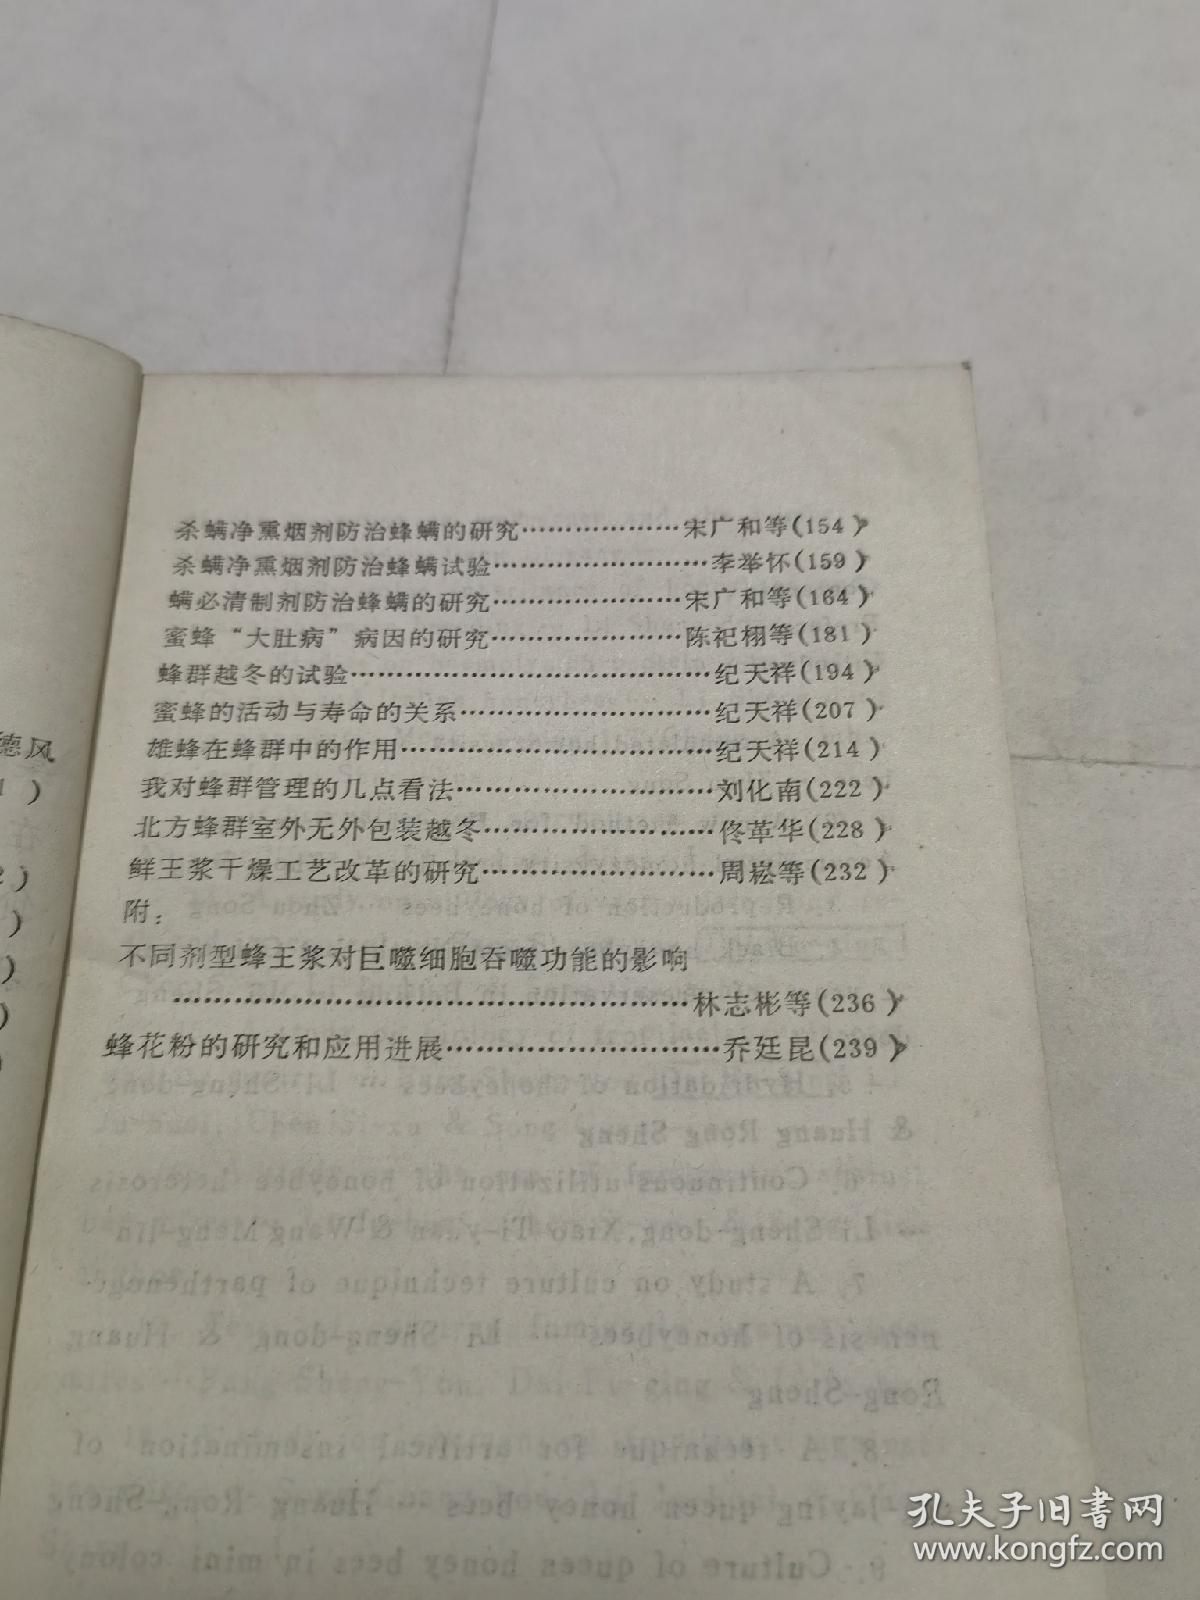 杀螨净熏烟剂防治蜂螨的研究………………宋广和等(154)
杀螨净熏烟剂防治蜂螨试验……………………李举怀(159)
螨必清制剂防治蜂螨的研究…………………宋广和等(164)
蜜蜂“大肚病”病因的研究…………………陈祀栩等(181)
蜂群越冬的试验…………………………………纪天祥(194)
蜜蜂的活动与寿命的关系………………………纪天祥(207)
雄蜂在蜂群中的作用……………………………纪天祥(214)
我对蜂群管理的几点看法………………………刘化南(222)
北方蜂群室外无外包装越冬……………………佟革华(228)
鲜王浆干燥工艺改革的研究……………………周崧等(232)
附:
不同剂型蜂王浆对巨噬细胞吞噬功能的影响
………………………………………………林志彬等(236)
蜂花粉的研究和应用进展………………………乔廷昆(239)
德风
孔夫子旧书网
www.kongfz.com